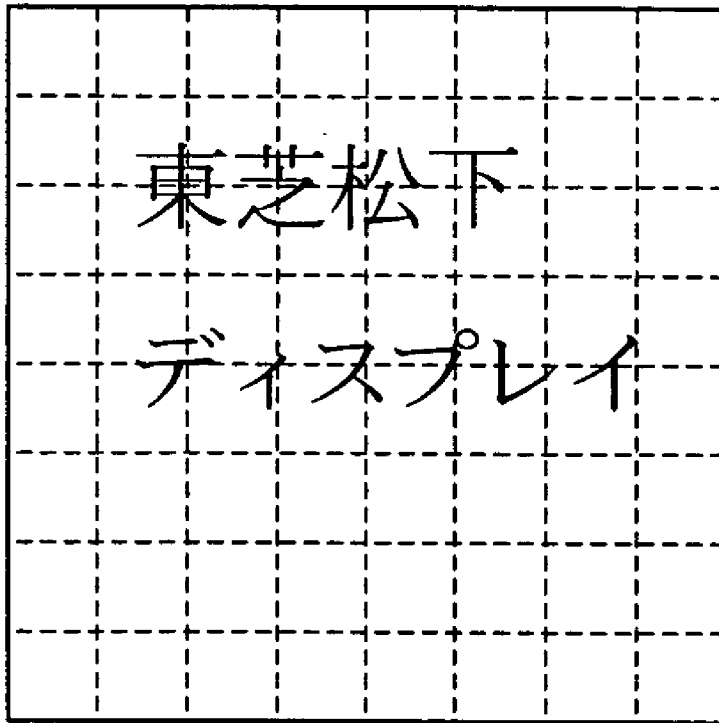 東芝松下
ディスプレイ